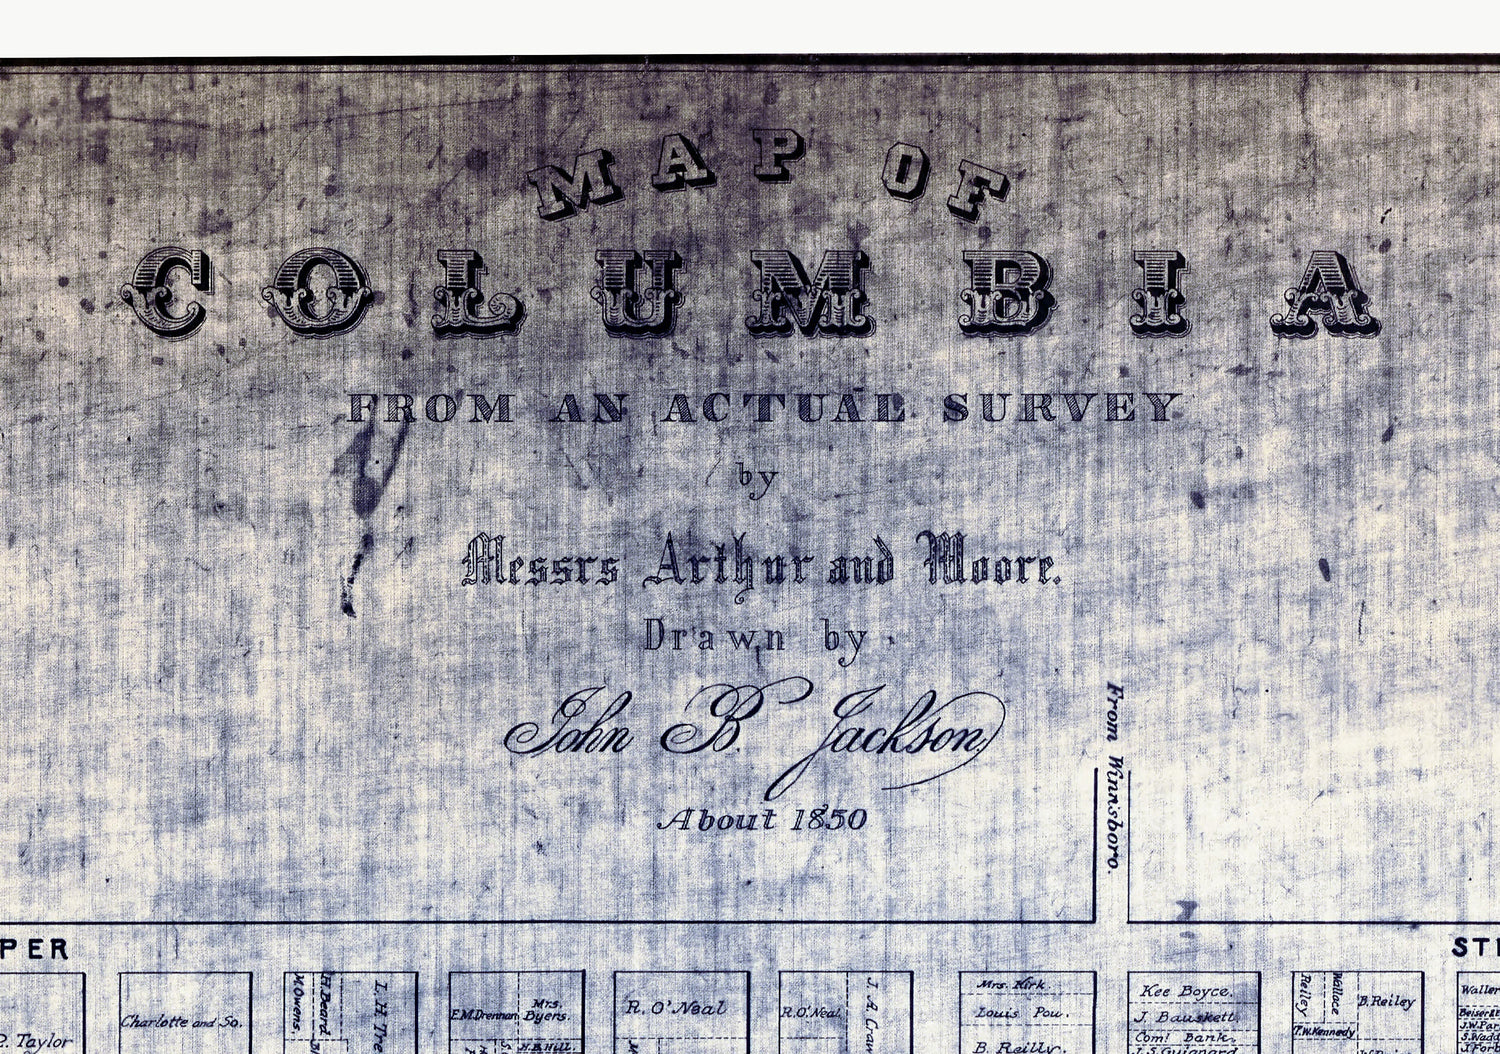 MAP OF
COLUMBIA
FROM AN ACTUAL SURVEY
by
Messrs Arthur and Moore.
Drawn by
John B. Jackson
About 1850
From Winnsboro.
PER
Taylor
Charlotte and So.
M. Owens.
H. Beard
L. H. Tre
E.M. Drennan
Mrs. Byers.
H.B. Hill.
R. O'Neal
R. O'Neal
J. A. Cran
Mrs. Kirk.
Louis Pou.
B. Reilly.
Kee Boyce.
J. Bauskett
Coml Bank.
J.S. Guignard
Reiley
Wallace
B. Reiley
T.W. Kennedy
ST
Waller
J.W. Par
S. Wadd
J. Forb